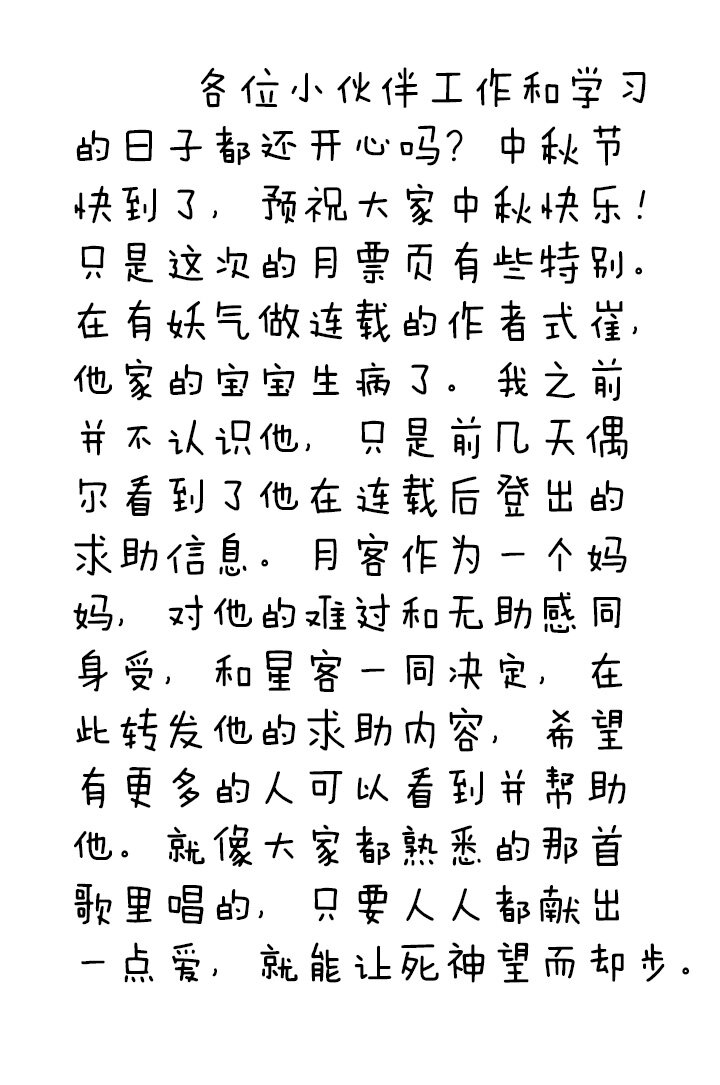 各位小伙伴工作和学习
的日子都还开心吗？中秋节
快到了，预祝大家中秋快乐！
只是这次的月票页有些特别。
在有妖气做连载的作者式崔，
他家的宝宝生病了。我之前
并不认识他，只是前几天偶
尔看到了他在连载后登出的
求助信息。月客作为一个妈
妈，对他的难过和无助感同
身受，和星客一同决定，在
此转发他的求助内容，希望
有更多的人可以看到并帮助
他。就像大家都熟悉的那首
歌里唱的，只要人人都献出
一点爱，就能让死神望而却步。